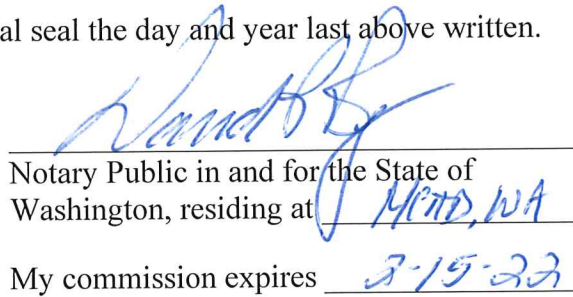 al seal the day and year last above written.
Notary Public in and for the State of
Washington, residing at MEAD, WA
My commission expires 2-15-22